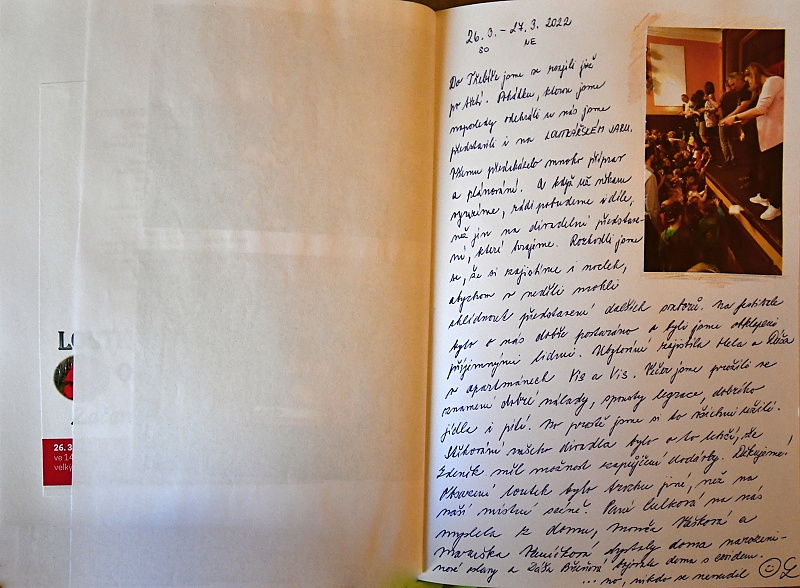 LO
26. 3
ve 14
velký
26. 3. – 27. 3. 2022
SO NE
Do Třebíče jsme se rozjeli již
po třetí. Pohádku, kterou jsme
naposledy odehráli u nás jsme
představili i na LOUTKÁŘSKÉM JARU.
Všemu předcházelo mnoho příprav
a plánování. A když už někam
vyrazíme, rádi pobudeme i déle,
než jen na divadelní představe-
ní, které hrajeme. Rozhodli jsme
se, že si zajistíme i nocleh,
abychom v neděli mohli
shlédnout představení dalších souborů. Na festivale
bylo o nás dobře postaráno a byli jsme obklopeni
příjemnými lidmi. Ubytování zajistila Hela a
v apartmánech Vis a Vis. Večer jsme prožili ve
znamení dobré nálady, spousty legrace, dobrého
jídla i pití. No prostě jsme si to všichni užili.
Stěhování našeho divadla bylo o to lehčí, že
Zdeněk měl možnost zapůjčení dodávky. Děkujeme!
Obsazení loutek bylo trochu jiné, než na
naší místní scéně. Paní Lulková na nás
myslela z domu, Monča Vášková a
Maruška doma narozeni-
nové oslavy a Dáša doma s covidem.
... no, nikdo se nenudil